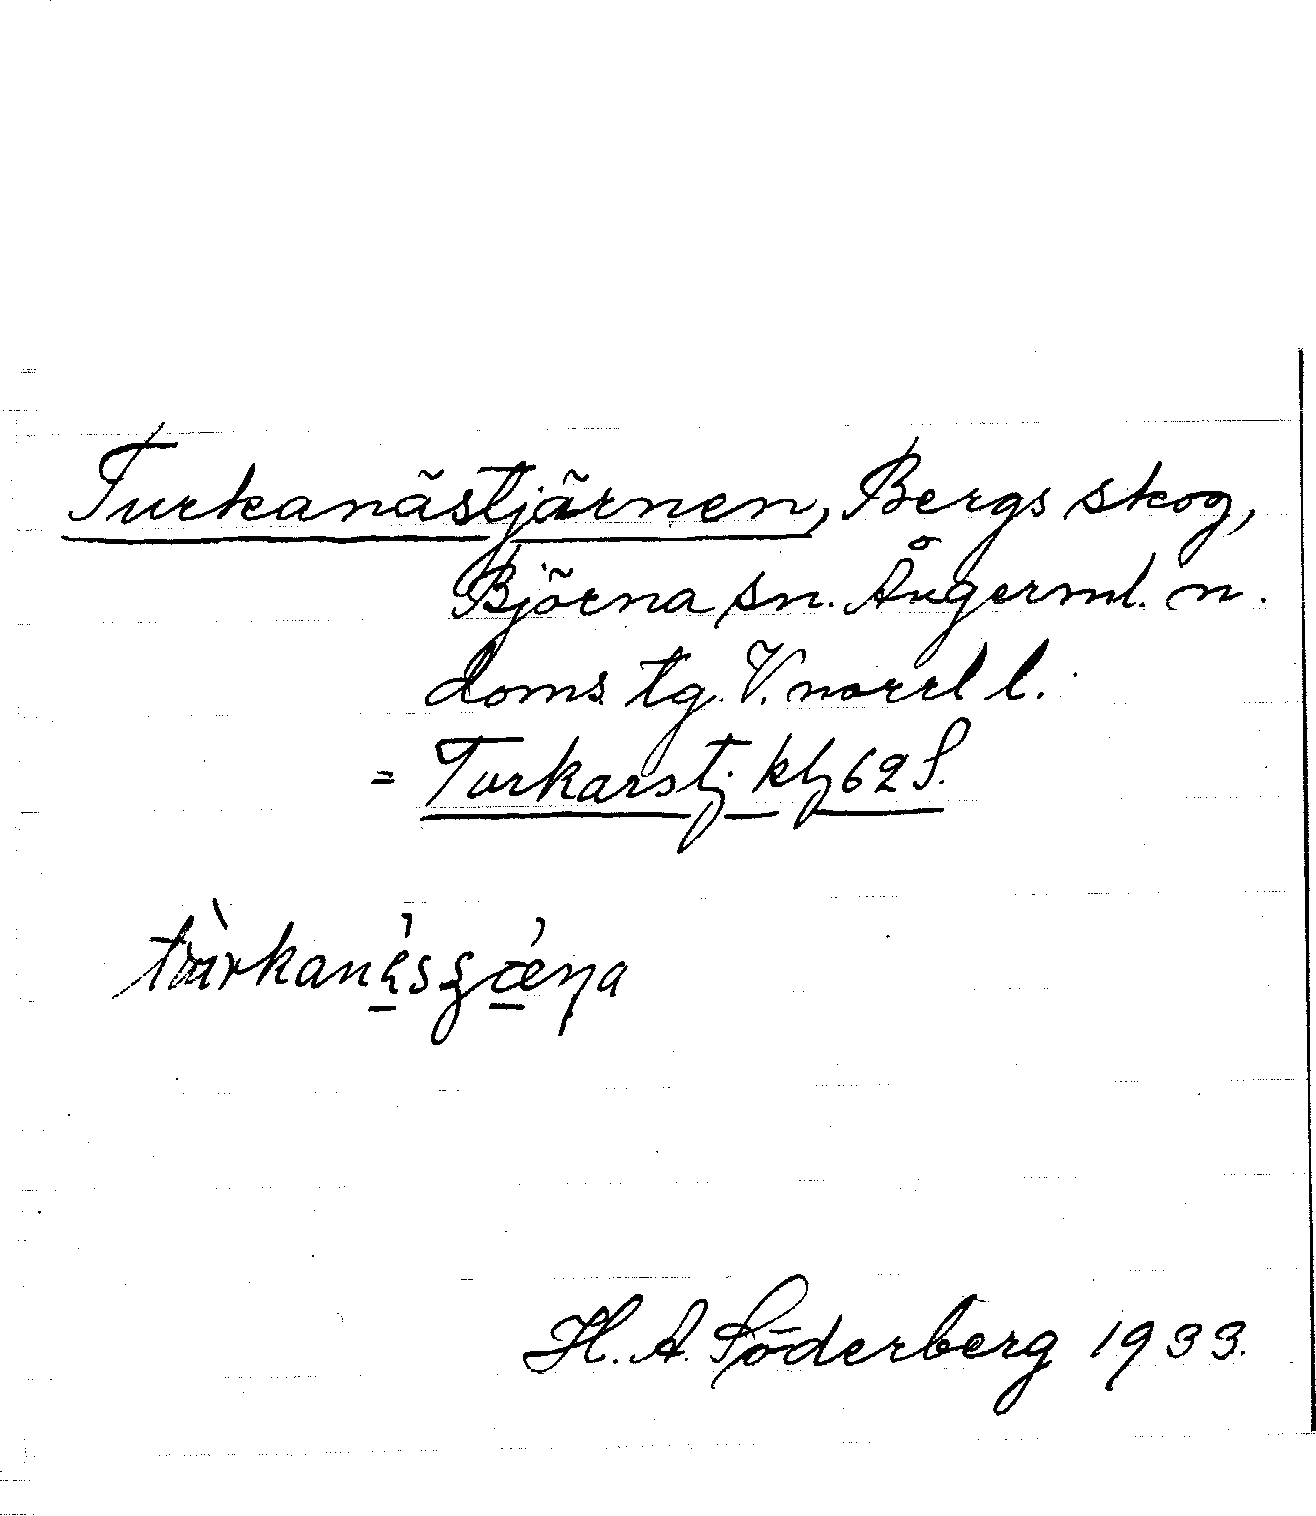 Turkanästjärnen, Bergs skog,
Björna sn. Ångerml. n.
doms. tg. V. norrl l.
= Turkarstj. kbl 62 S.
H. A. Söderberg 1933.